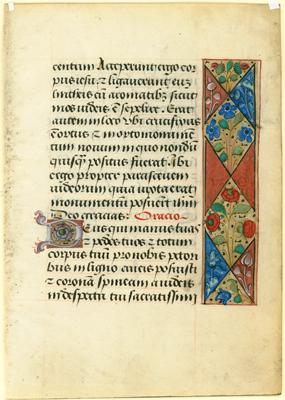 centum Acceperunt ergo cor
pus iesu. & ligauerunt eum
lintheis cū aromatibus sicut
mos iudeis ē sepelire. Erat
autem in loco vbi crucifixus
ē ortus & in orto monumen
tum nouum in quo nondū
quisq̄ positus fuerat. Ibi
ergo propter parasceuen
iudeorum quia iuxta erat
monumentū posuerūt iesū
Deo gracias. Oracio
Deus qui manus tuas
& pedes tuos & totum
corpus tuū pro nobis pctori
bus in ligno crucis posuisti
& coronā spineam a iudeis
in despectū tui sacratissim